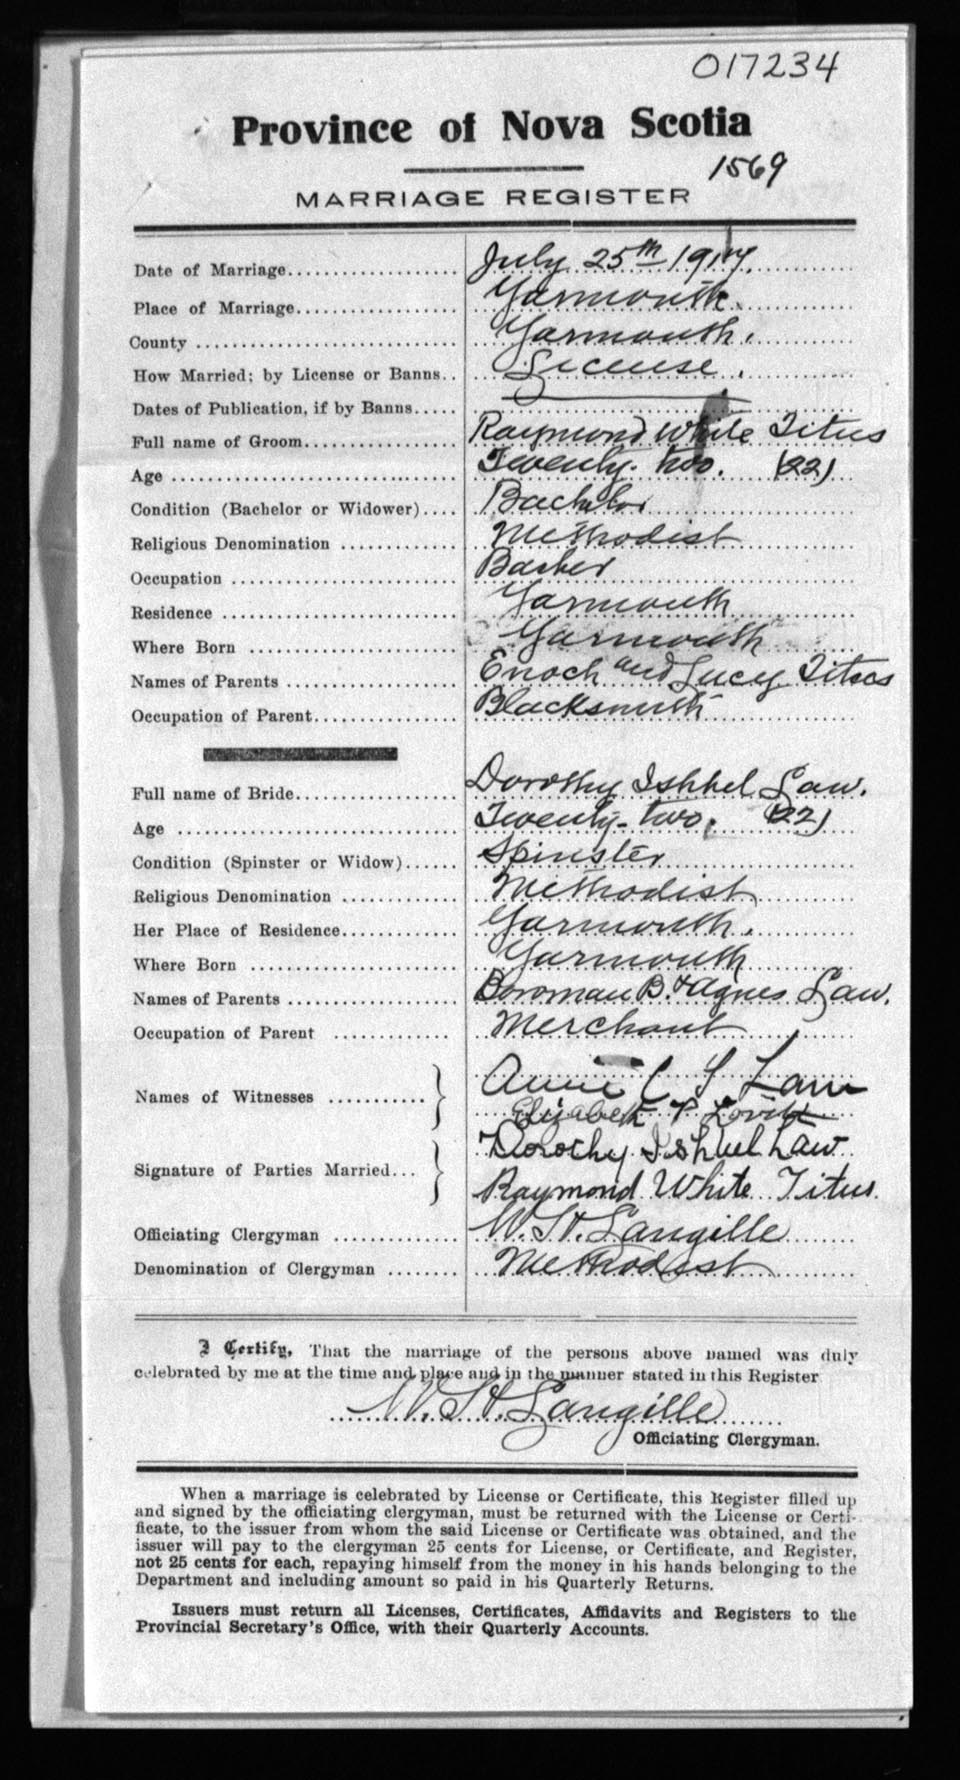 017234
Province of Nova Scotia
1569
MARRIAGE REGISTER
Date of Marriage.................... July 25th 1917.
Place of Marriage................... Yarmouth.
County ............................. Yarmouth.
How Married; by License or Banns.. License.
Dates of Publication, if by Banns.....
Full name of Groom.................. Raymond White Titus
Age ................................ Twenty-two. (22)
Condition (Bachelor or Widower).... Bachelor
Religious Denomination ............. Methodist
Occupation ......................... Barber
Residence .......................... Yarmouth
Where Born ......................... Yarmouth
Names of Parents ................... Enoch and Lucy Titus
Occupation of Parent................ Blacksmith
Full name of Bride.................. Dorothy Ishbel Law.
Age ................................ Twenty-two. (22)
Condition (Spinster or Widow)...... Spinster
Religious Denomination ............. Methodist
Her Place of Residence............. Yarmouth.
Where Born ......................... Yarmouth
Names of Parents ................... Bowman B. & Agnes Law.
Occupation of Parent ............. Merchant
Names of Witnesses ........... Annie C S Law
Elizabeth P Lovitt
Signature of Parties Married... Dorothy Ishbel Law
Raymond White Titus.
Officiating Clergyman ............. W. H. Langille
Denomination of Clergyman ........ Methodist
I Certify, That the marriage of the persons above named was duly
celebrated by me at the time and place and in the manner stated in this Register
W. H. Langille
Officiating Clergyman.
When a marriage is celebrated by License or Certificate, this Register filled up
and signed by the officiating clergyman, must be returned with the License or Certi-
ficate, to the issuer from whom the said License or Certificate was obtained, and the
issuer will pay to the clergyman 25 cents for License, or Certificate, and Register,
not 25 cents for each, repaying himself from the money in his hands belonging to the
Department and including amount so paid in his Quarterly Returns.
Issuers must return all Licenses, Certificates, Affidavits and Registers to the
Provincial Secretary's Office, with their Quarterly Accounts.